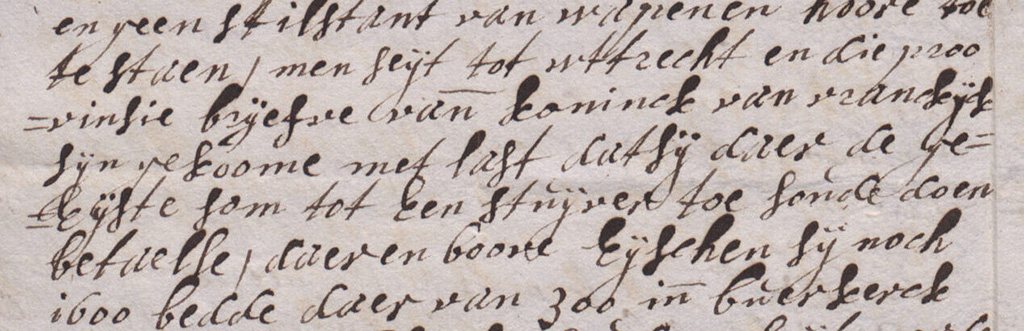 en geen stilstant van wapenen hoore toe
te staen, men seyt tot wttrecht en die proo
=vinsie bryefve van koninck van vranckyk
syn gekoome met last dat sy daer de ge=
=Eyste som tot Een stuyver toe soude doen
betaelse, daer en boove Eyschen sy noch
1600 bedde daer van 300 in buerkerck